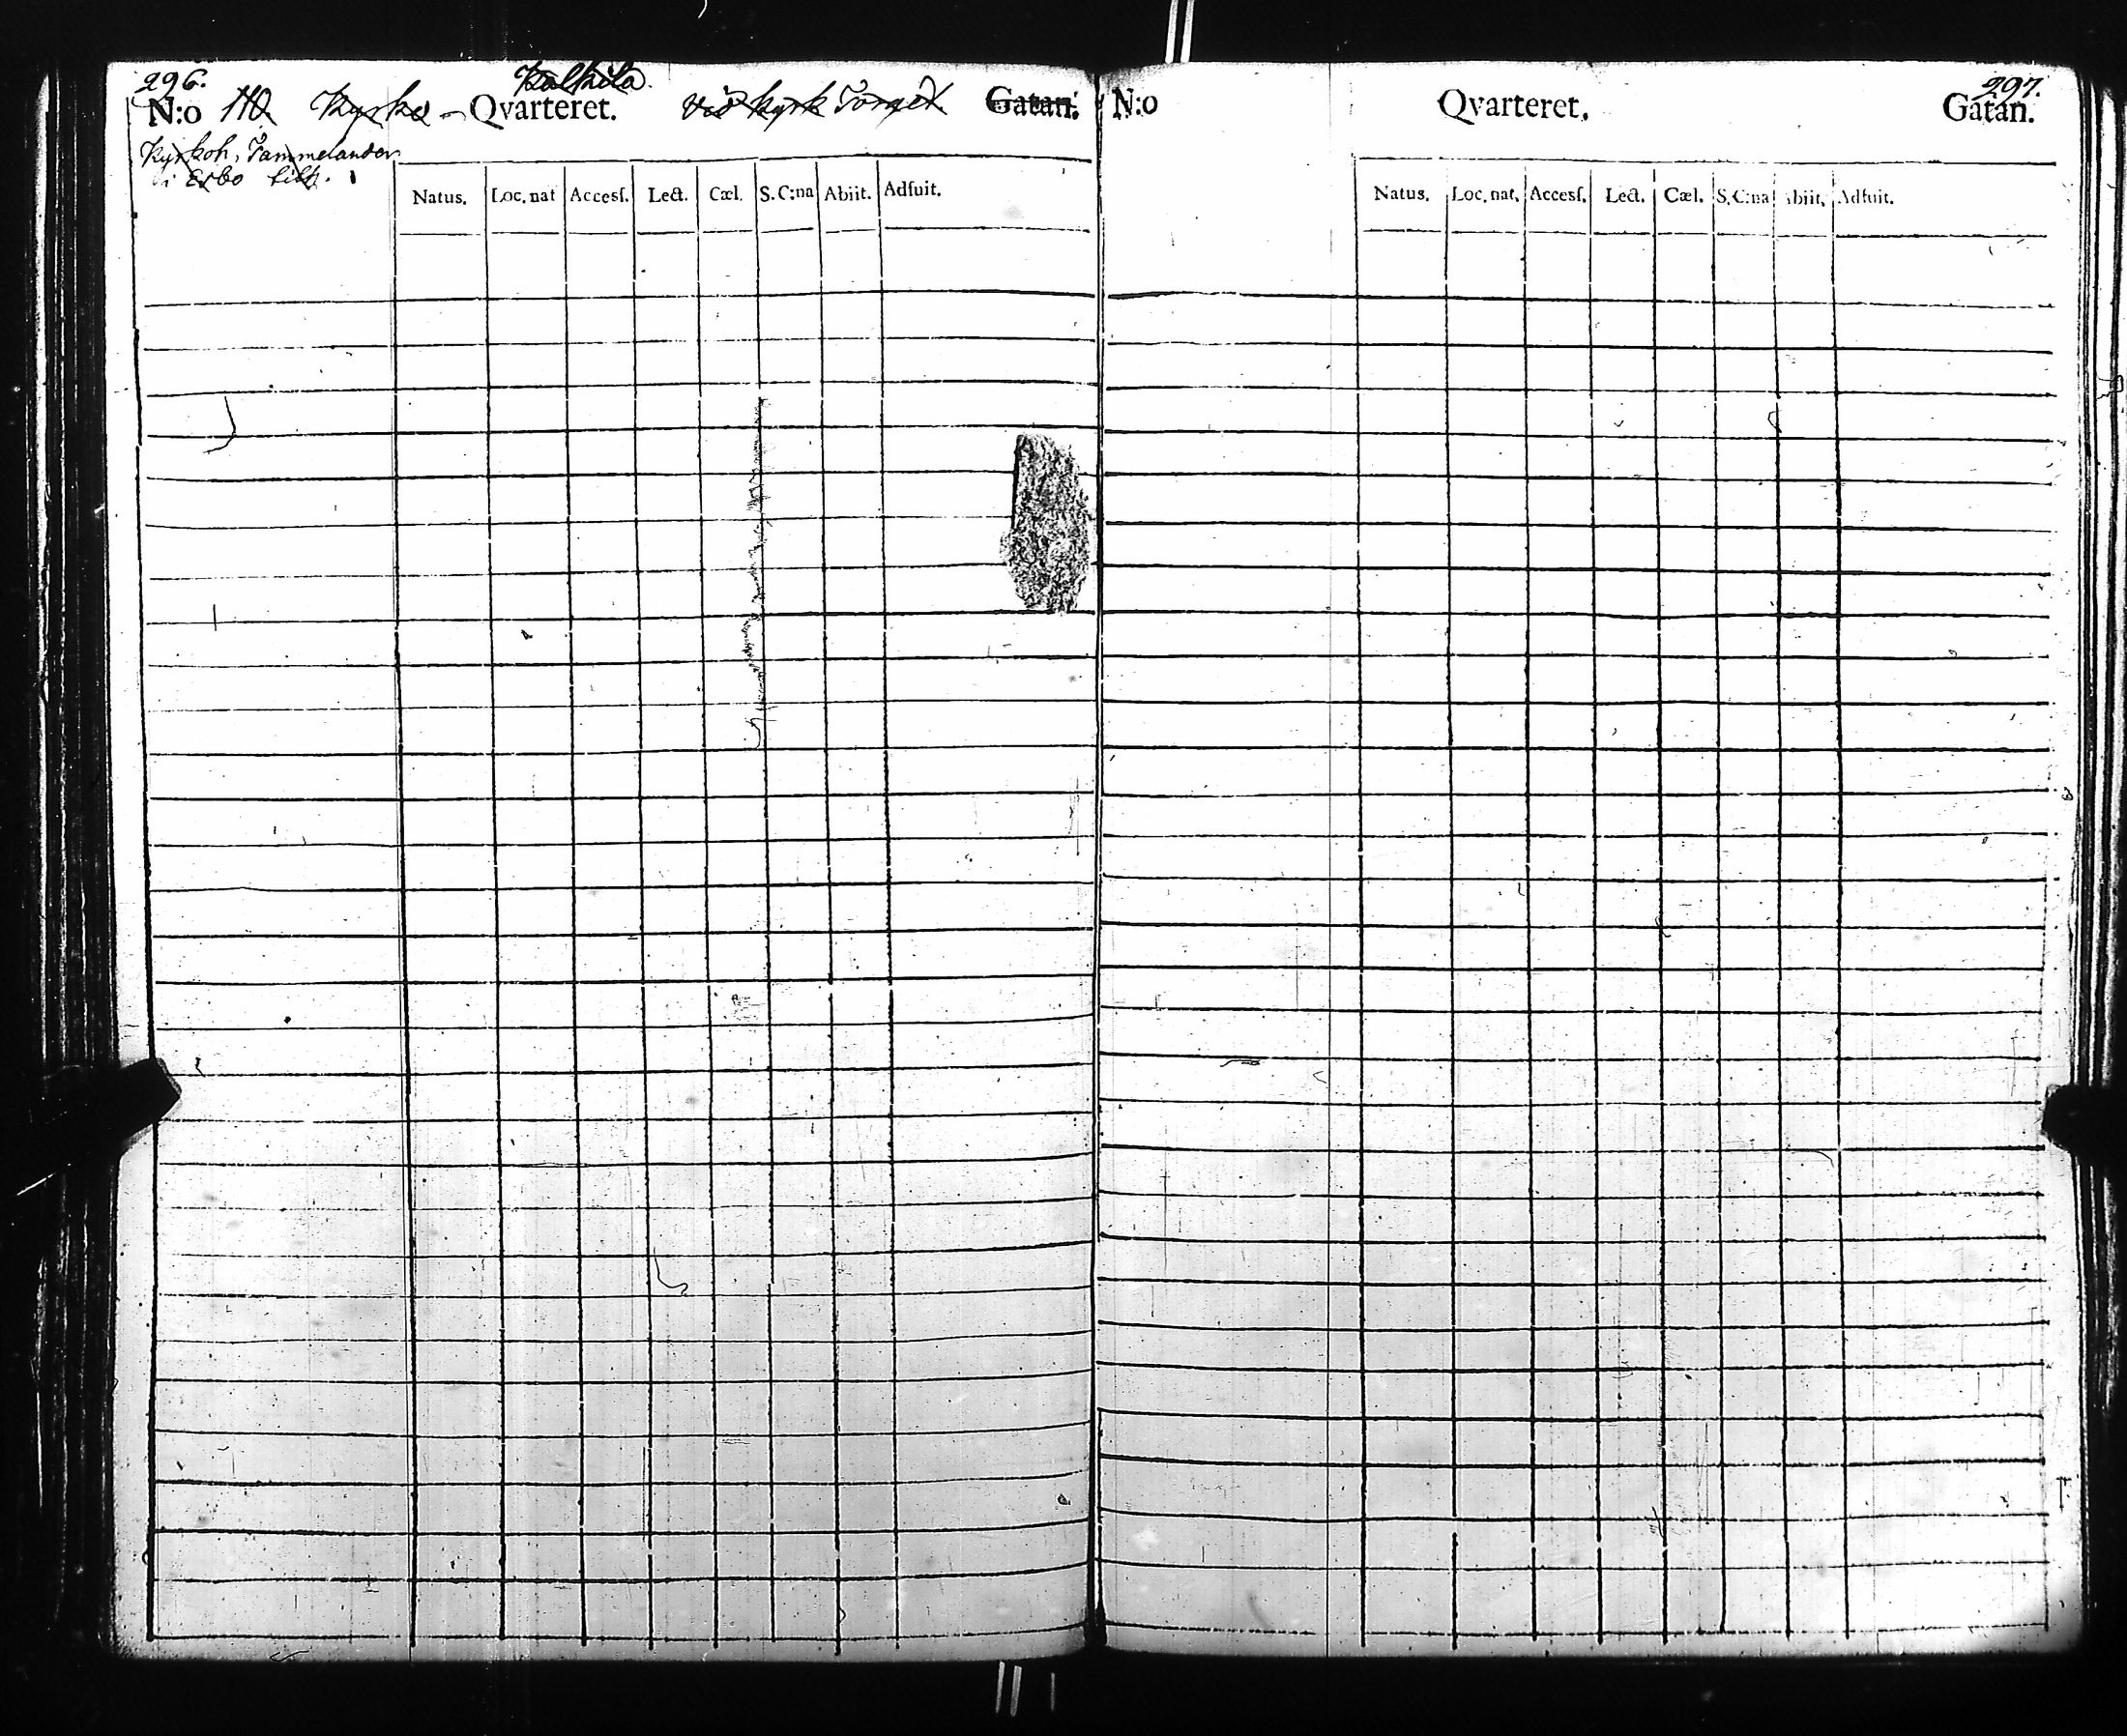 296.
Kalkila
N:o 110. Kyrko - Qvarteret. vid kyrk Torget Gatan.
Kyrkoh. Tammelander
i Erbo tilh.
Natus. Loc. nat Accesſ. Lect. Cæl. S. C:na Abiit. Adfuit.
297.
N:o Qvarteret. Gatan.
Natus. Loc. nat. Accesſ. Lect. Cæl. S. C:na Abiit. Adfuit.